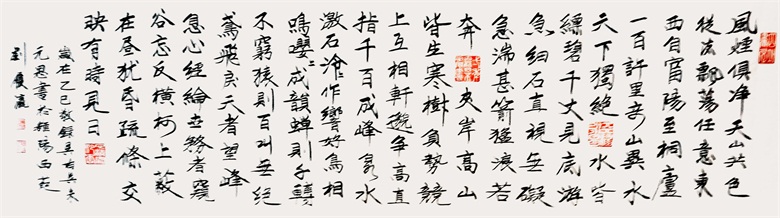 風烟俱净天山共色
從流飄荡任意東
西自富陽至桐廬
一百許里奇山異水
天下獨绝水皆
縹碧千丈見底游
魚细石直視無礙
急湍甚箭猛浪若
奔夹岸高山
皆生寒樹負势競
上互相軒邈争高直
指千百成峰泉水
激石泠〻作響好鳥相
鳴嚶〻成韻蝉則千轉
不窮猿則百叫無绝
鸢飛戾天者望峰
息心經綸世務者窺
谷忘反横柯上蔽
在昼犹昏疏條交
映有時見日
歲在乙巳敬録吴均与朱
元思書於